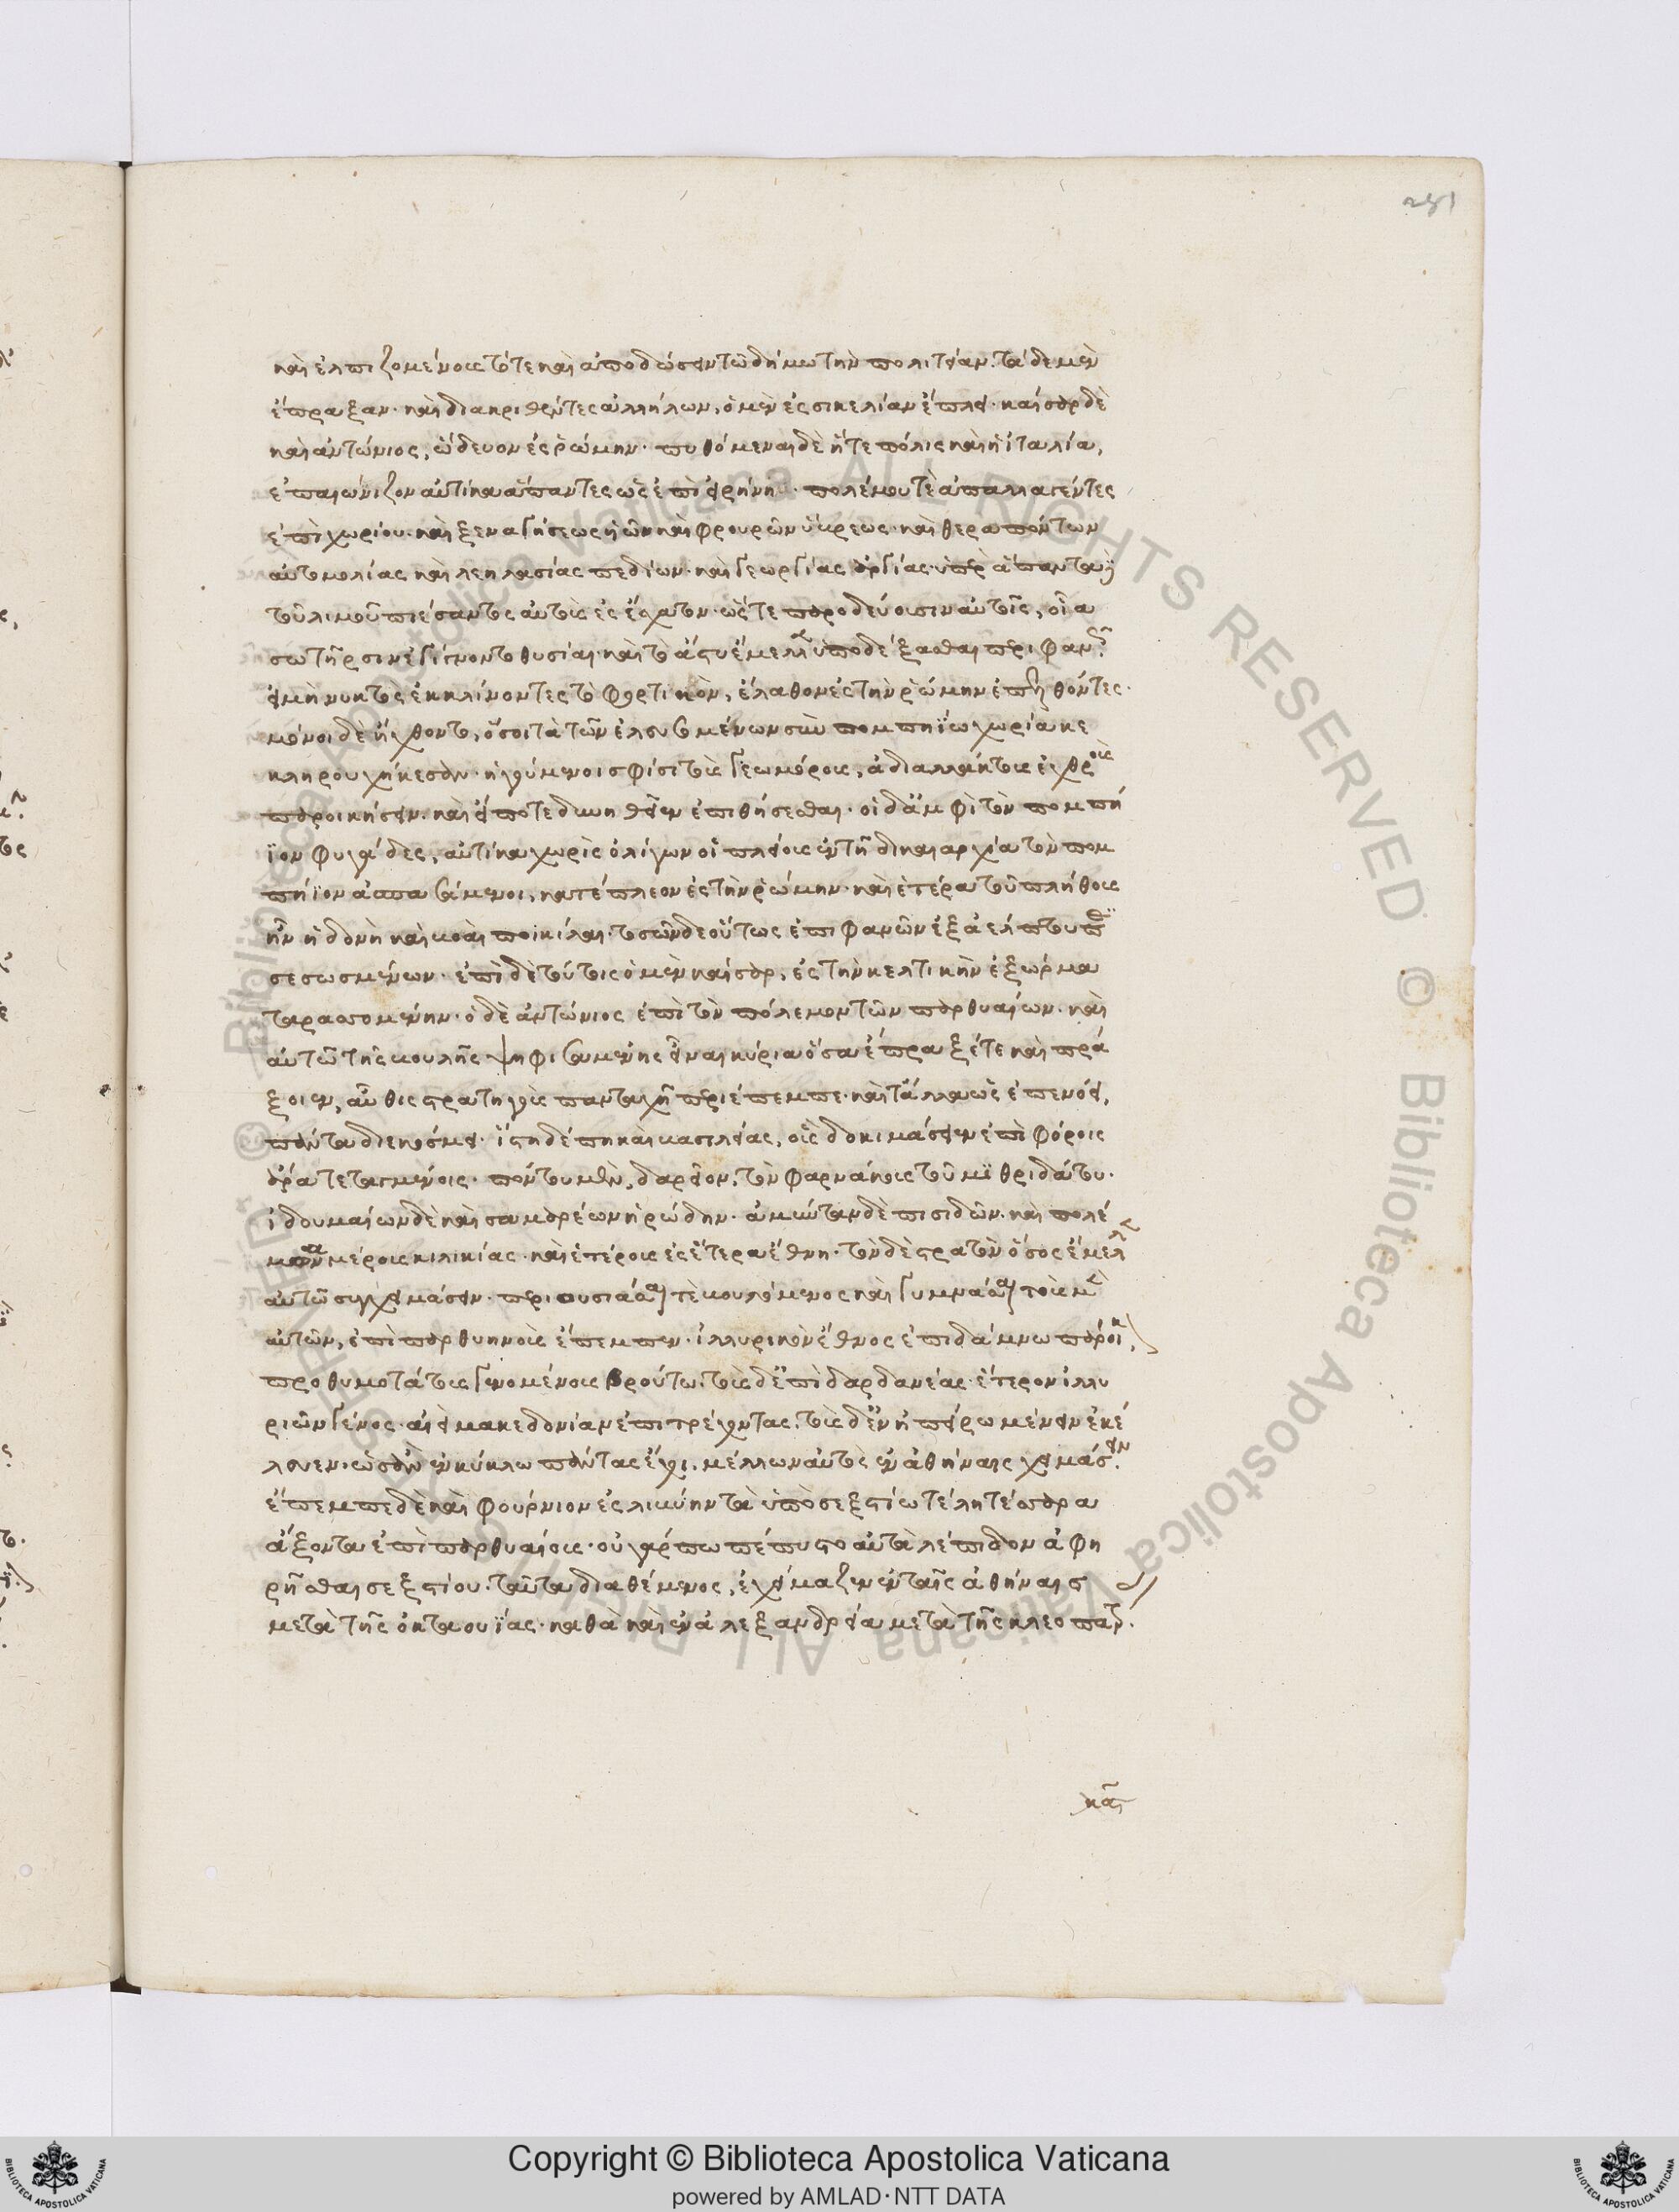 251
καὶ ἐλπιζομένους τότε καὶ ἀποδώσειν τῶ δήμω τὴν πολιτείαν. τάδε μὲν
ἔπραξαν· καὶ διακριθέντες ἀλλήλων, ὁ μὲν ἐς σικελίαν ἔπλει· καῖσαρ δὲ
καὶ ἀντώνιος, ὥδευον ἐς ῥώμην· πυθόμεναι δὲ ἥτε πόλις καὶ ἡ ἰταλία,
ἐπαιώνιζον αὐτίκα ἅπαντες ὡς ἐπὶ εἰρήνη· πολέμου τὲ ἀπαλλαγέντες
ἐπιχωρίου· καὶ ξεναγήσεως ὑῶν καὶ φρουρῶν ὕβρεως· καὶ θεραπόντων
αὐτομολίας καὶ λεηλασίας πεδίων· καὶ γεωργίας ἀργίας· ὑπὲρ ἅπαντα δὲ
τοῦ λιμοῦ πιέσαντος αὐτοὺς ἐς ἔσχατον· ὥστε παροδεύουσιν αὐτοῖς, οἷα
σωτῆρσιν ἐγίγνοντο θυσίαι· καὶ τὸ ἄστυ ἔμελλεν ὑποδέξασθαι περιφανῶς.
εἰ μὴ νυκτὸς ἐκκλίνοντες τὸ φορτικὸν, ἔλαθον ἐς τὴν ῥώμην ἐπελθόντες.
μόνοι δὲ ἤχθοντο, ὅσοι τὰ τῶν ἐλευσομένων σὺν πομπηίω χωρία κε
κληρουχήκεσαν· ἡγούμενοι σφίσι τοὺς γεωμόρους, ἀδιαλλάκτους ἐχθροὺς
παροικήσειν. καὶ εἴποτε δυνηθεῖεν ἐπιθήσεσθαι· οἱ δ' ἀμφὶ τὸν πομπή
ϊον φυγάδες, αὐτίκα χωρὶς ὀλίγων οἱ πλείους ἐν τῆ δικαιαρχία τὸν πομ
πήϊον ἀσπασάμενοι, κατέπλεον ἐς τὴν ῥώμην· καὶ ἑτέρα τοῦ πλήθους
ἦν ἡδονὴ καὶ βοαὶ ποικίλαι· τοσῶνδε οὕτως ἐπιφανῶν ἐξ ἀέλπτου περι
σεσωσμένων· ἐπὶ δὲ τούτοις ὁ μὲν καῖσαρ, ἐς τὴν κελτικὴν ἐξώρμα
ταρασσομένην· ὁ δὲ ἀντώνιος ἐπὶ τὸν πόλεμον τῶν παρθυαίων· καὶ
αὐτῶ τῆς βουλῆς ψηφισαμένης εἶναι κύρια ὅσα ἔπραξέ τε καὶ πρά
ξοιεν, αὖθις στρατηγοὺς πανταχῆ περιέπεμπε· καὶ τἄλλα ὡς ἐπενόει,
πάντα διεκόσμει· ἵστη δέ πη καὶ βασιλέας, οὓς δοκιμάσειεν ἐπὶ φόροις
ἄρα τεταγμένοις· πόντου μὲν, δαρεῖον, τὸν φαρνάκους τοῦ μιθριδάτου.
ἰδουμαίων δὲ καὶ σαμαρέων ἡρώδην· ἀμύνταν δὲ πισιδῶν· καὶ πολέ
μωνα μέρους κιλικίας· καὶ ἑτέρους ἐς ἕτερα ἔθνη· τὸν δὲ στρατὸν ὅσος ἔμελλεν
αὐτῶ συγχειμάσειν· περιουσιάσαι τὲ βουλόμενος καὶ γυμνάσαι τοὺς μὲν
αὐτῶν, ἐπὶ παρθυηνοὺς ἔπεμπεν· ἰλλυρικὸν ἔθνος ἐπιδάμνω πάροικον,
προθυμοτάτους γενομένους βρούτω. τοὺς δ' ἐπὶ δαρδανέας· ἕτερον ἰλλυ
ριῶν γένος· αἰεὶ μακεδονίαν ἐπιτρέχοντας. τοὺς δ' ἐν ἠπείρω μένειν ἐκέ
λευεν. ὡς ἂν ἐν κύκλω πάντας ἔχοι. μέλλων αὐτὸς ἐν ἀθήναις χειμάσειν.
ἔπεμπε δὲ καὶ φούρνιον ἐς λιβύην τὰ ὑπὸ σεξστίω τέλη τέσσαρα
ἄξοντα ἐπὶ παρθυαίους· οὐ γάρ πω πέπυστο αὐτὰ λέπιδον ἀφη
ρῆσθαι σεξστίου. ταῦτα διαθέμενος, ἐχείμαζεν ἐν ταῖς ἀθήναις
μετὰ τῆς ὀκταουΐας· καθὰ καὶ ἐν ἀλεξανδρεία μετὰ τῆς κλεοπάτρας.